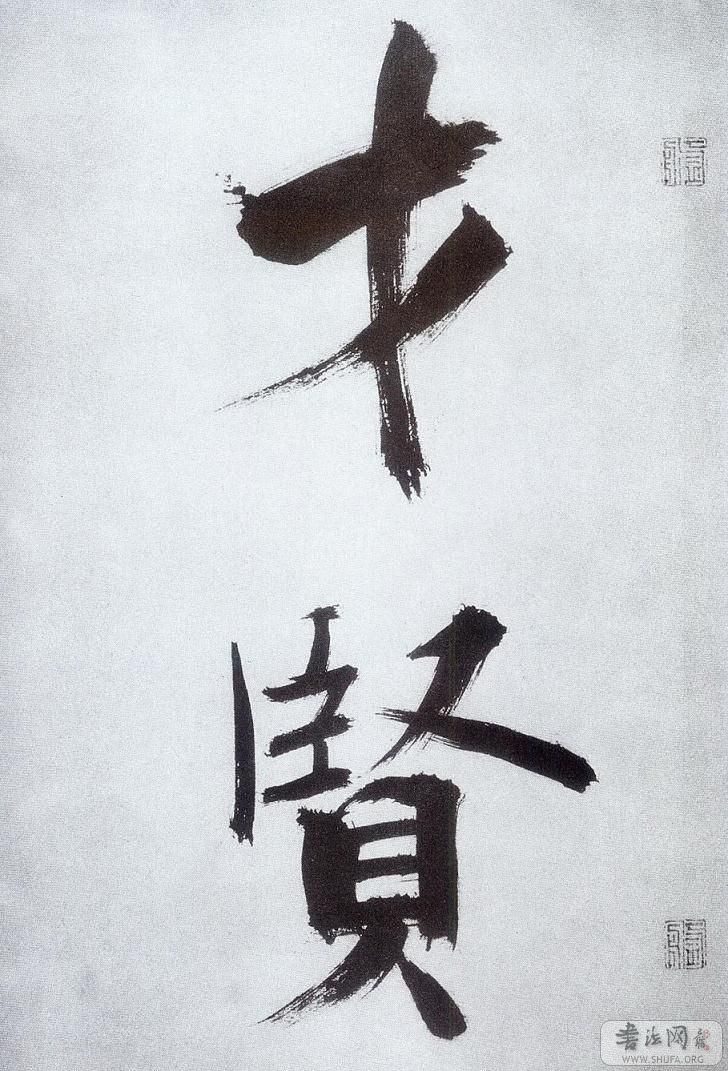 才
賢
书法网
WWW.SHUFA.ORG